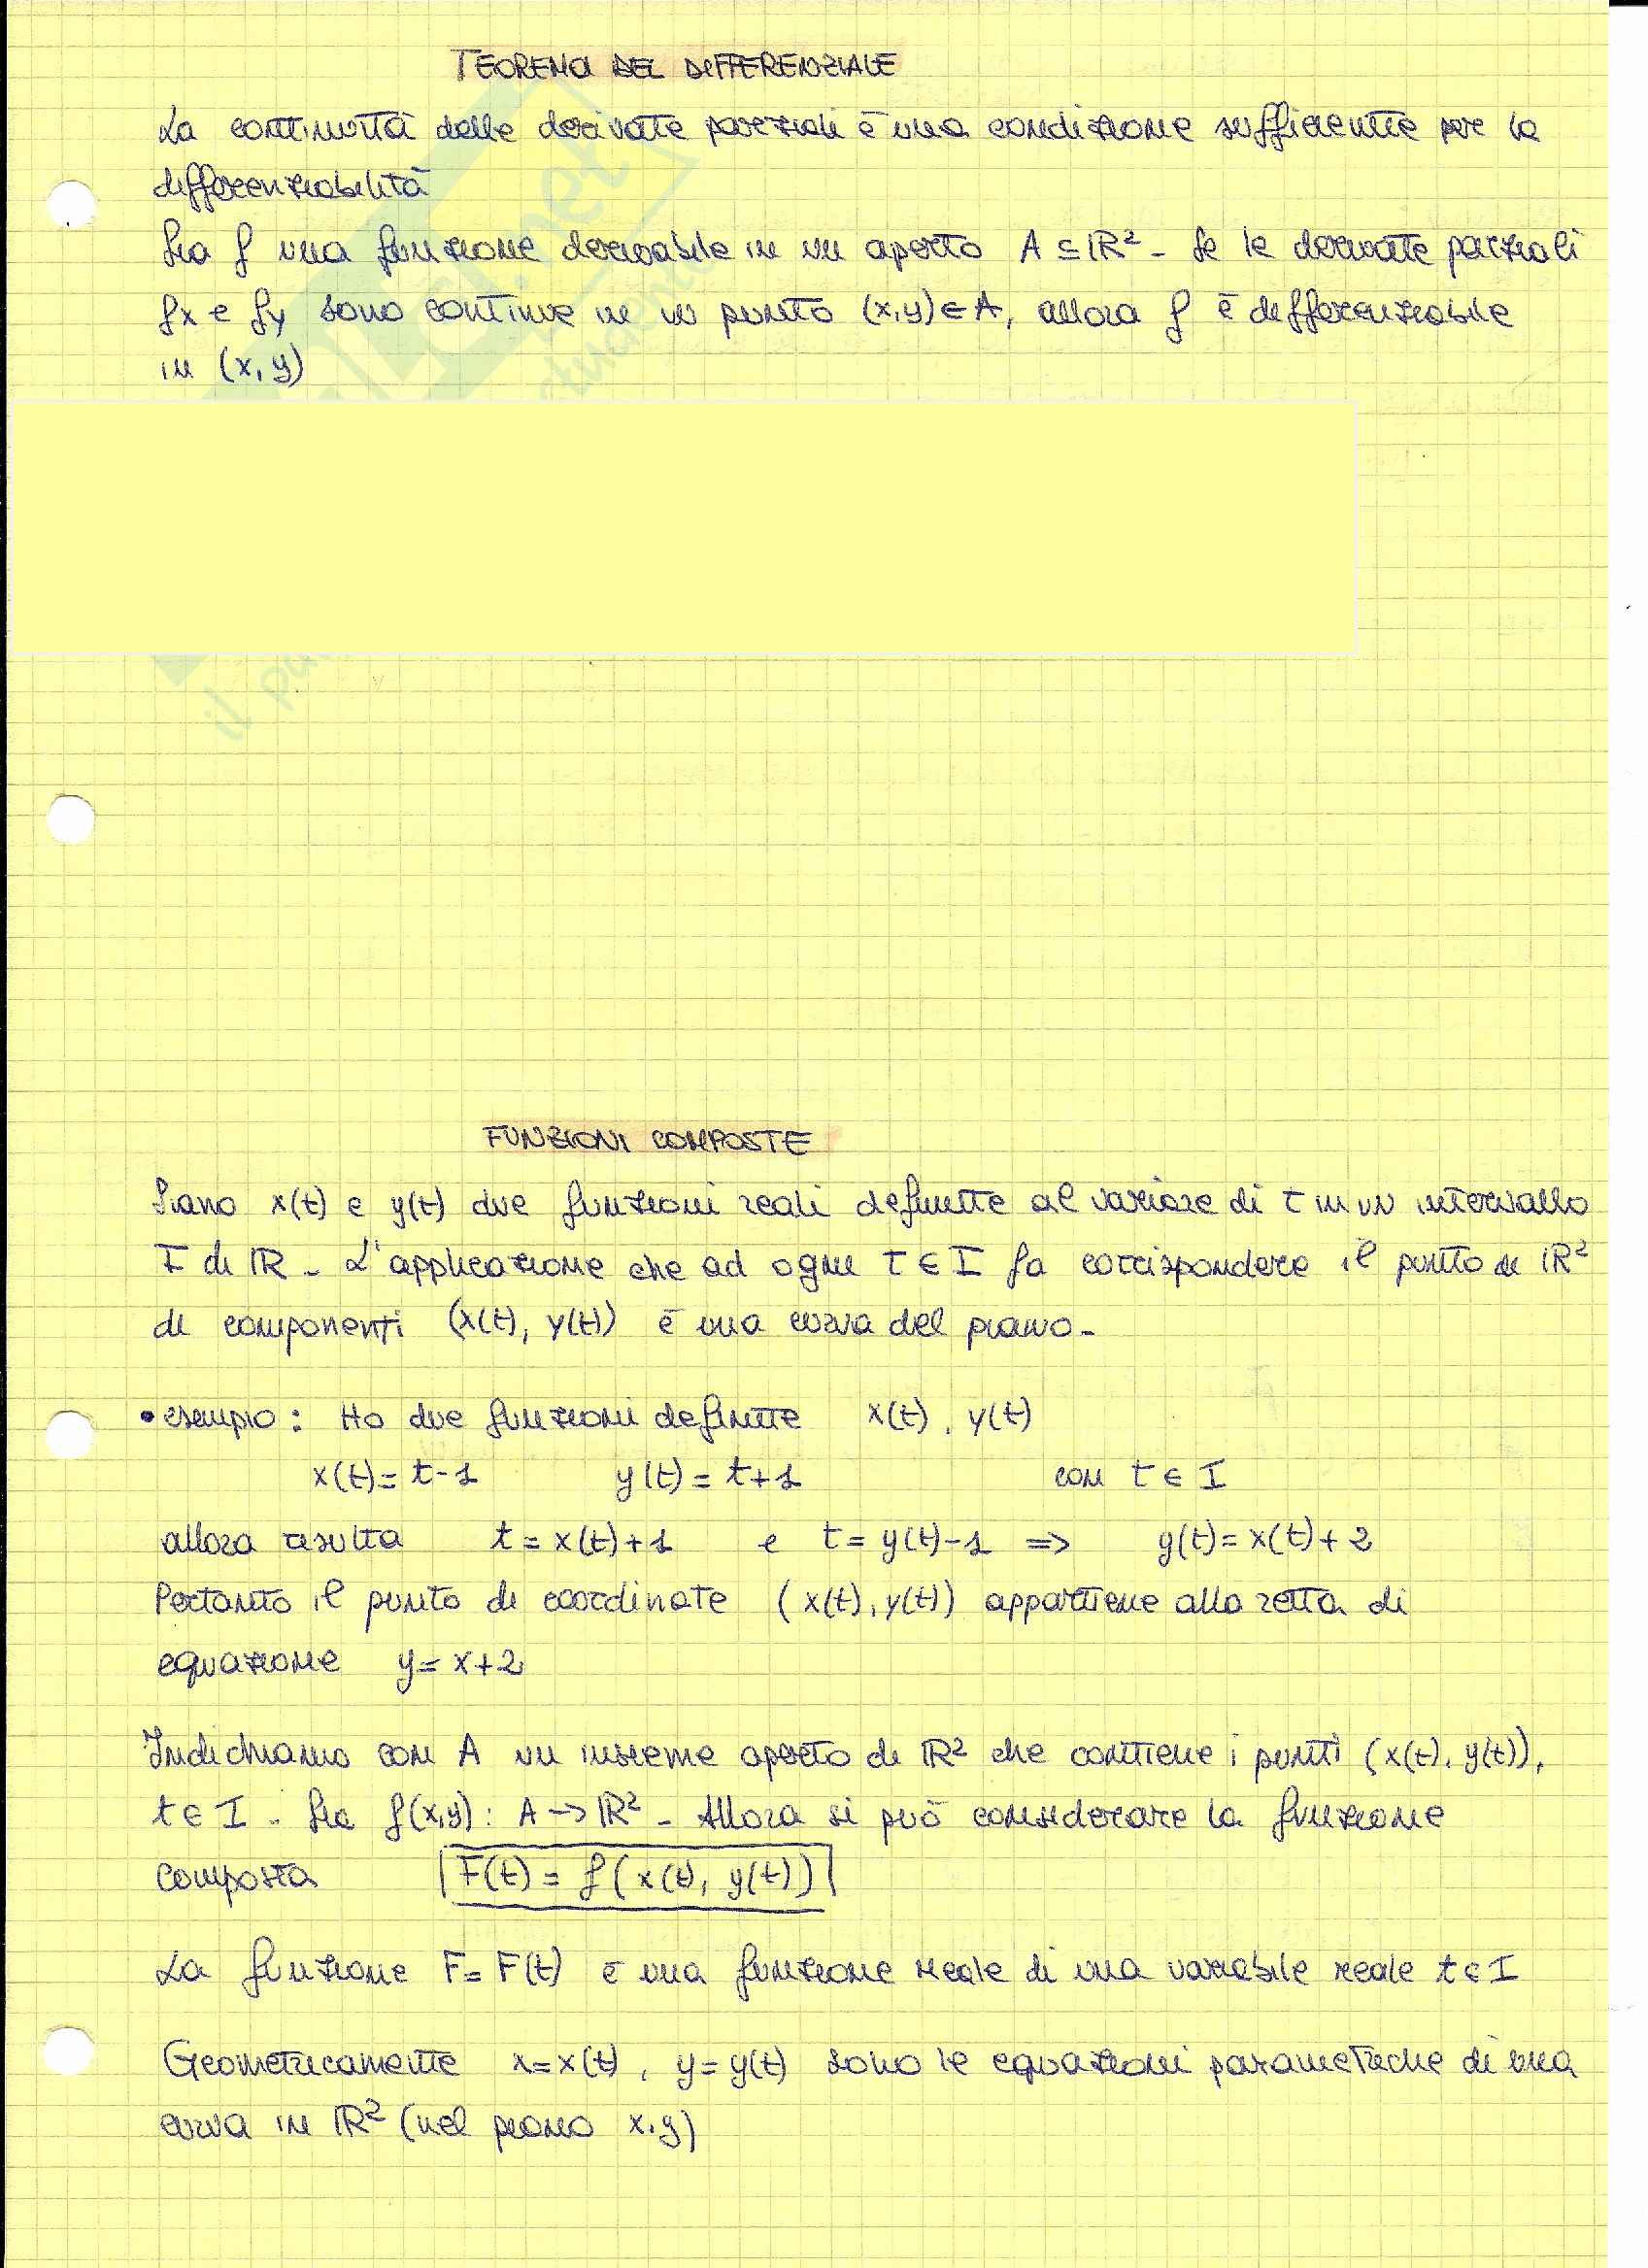 TEOREMA DEL DIFFERENZIALE
La continuità delle derivate parziali è una condizione sufficiente per la
differenziabilità
Sia f una funzione derivabile in un aperto A ⊆ IR² - Se le derivate parziali
fx e fy sono continue in un punto (x,y) ∈ A, allora f è differenziabile
in (x,y)
il
FUNZIONI COMPOSTE
Siano x(t) e y(t) due funzioni reali definite al variare di t in un intervallo
I di IR - L'applicazione che ad ogni t ∈ I fa corrispondere il punto di IR²
di componenti (x(t), y(t)) è una curva del piano -
• esempio: Ho due funzioni definite x(t), y(t)
x(t) = t-1 y(t) = t+1 con t ∈ I
allora risulta t = x(t)+1 e t = y(t)-1 => y(t) = x(t)+2
Pertanto il punto di coordinate (x(t), y(t)) appartiene alla retta di
equazione y = x+2
Indichiamo con A un insieme aperto di IR² che contiene i punti (x(t), y(t)),
t ∈ I - Sia f(x,y): A -> IR² - Allora si può considerare la funzione
composta F(t) = f(x(t), y(t))
La funzione F = F(t) è una funzione reale di una variabile reale t ∈ I
Geometricamente x = x(t), y = y(t) sono le equazioni parametriche di una
curva in IR² (nel piano x,y)